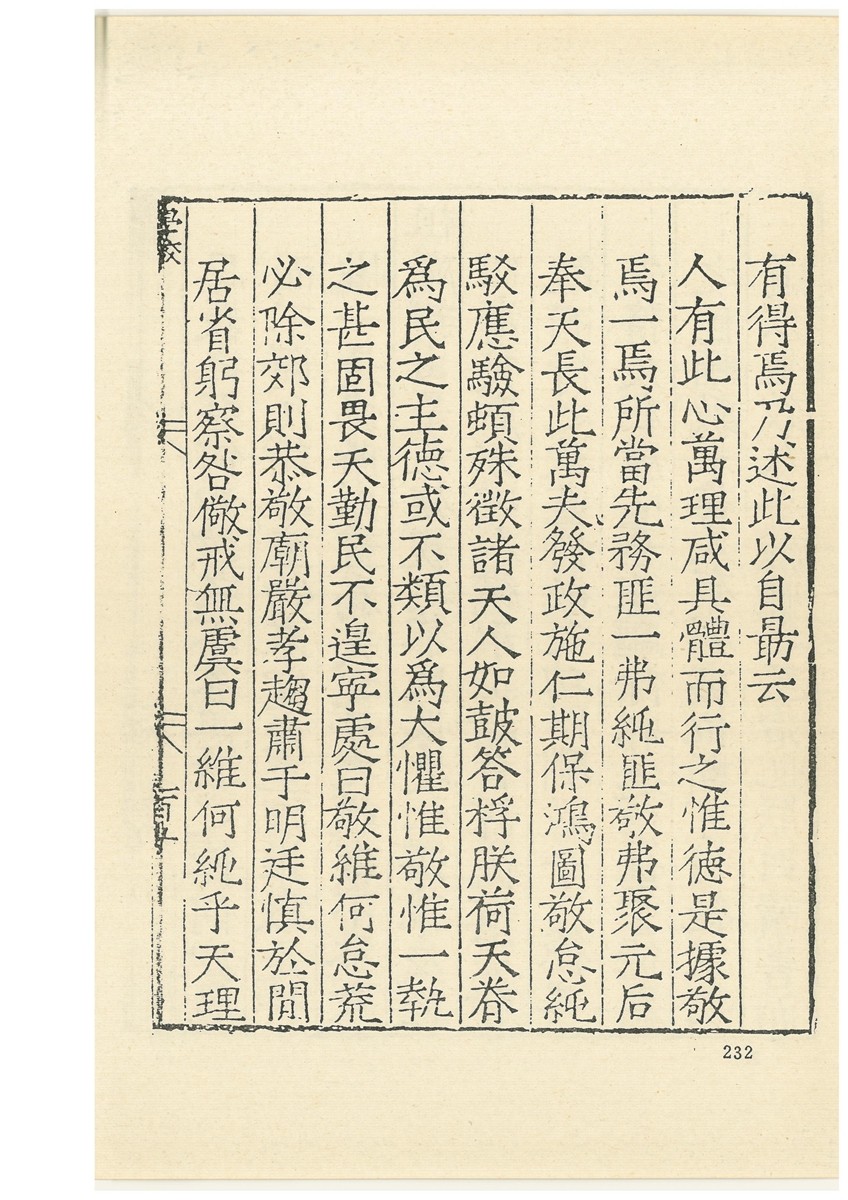 有得焉乃述此以自勗云
人有此心萬理咸具體而行之惟德是據敬
焉一焉所當先務匪一弗純匪敬弗聚元后
奉天長此萬夫發政施仁期保鴻圖敬怠純
駁應驗頓殊徵諸天人如鼓答桴朕荷天眷
爲民之主德或不類以爲大懼惟敬惟一執
之甚固畏天勤民不遑寧處曰敬維何怠荒
必除郊則恭敬廟嚴孝趨肅于明廷慎於閒
居省躬察咎儆戒無虞曰一維何純乎天理
學校
232